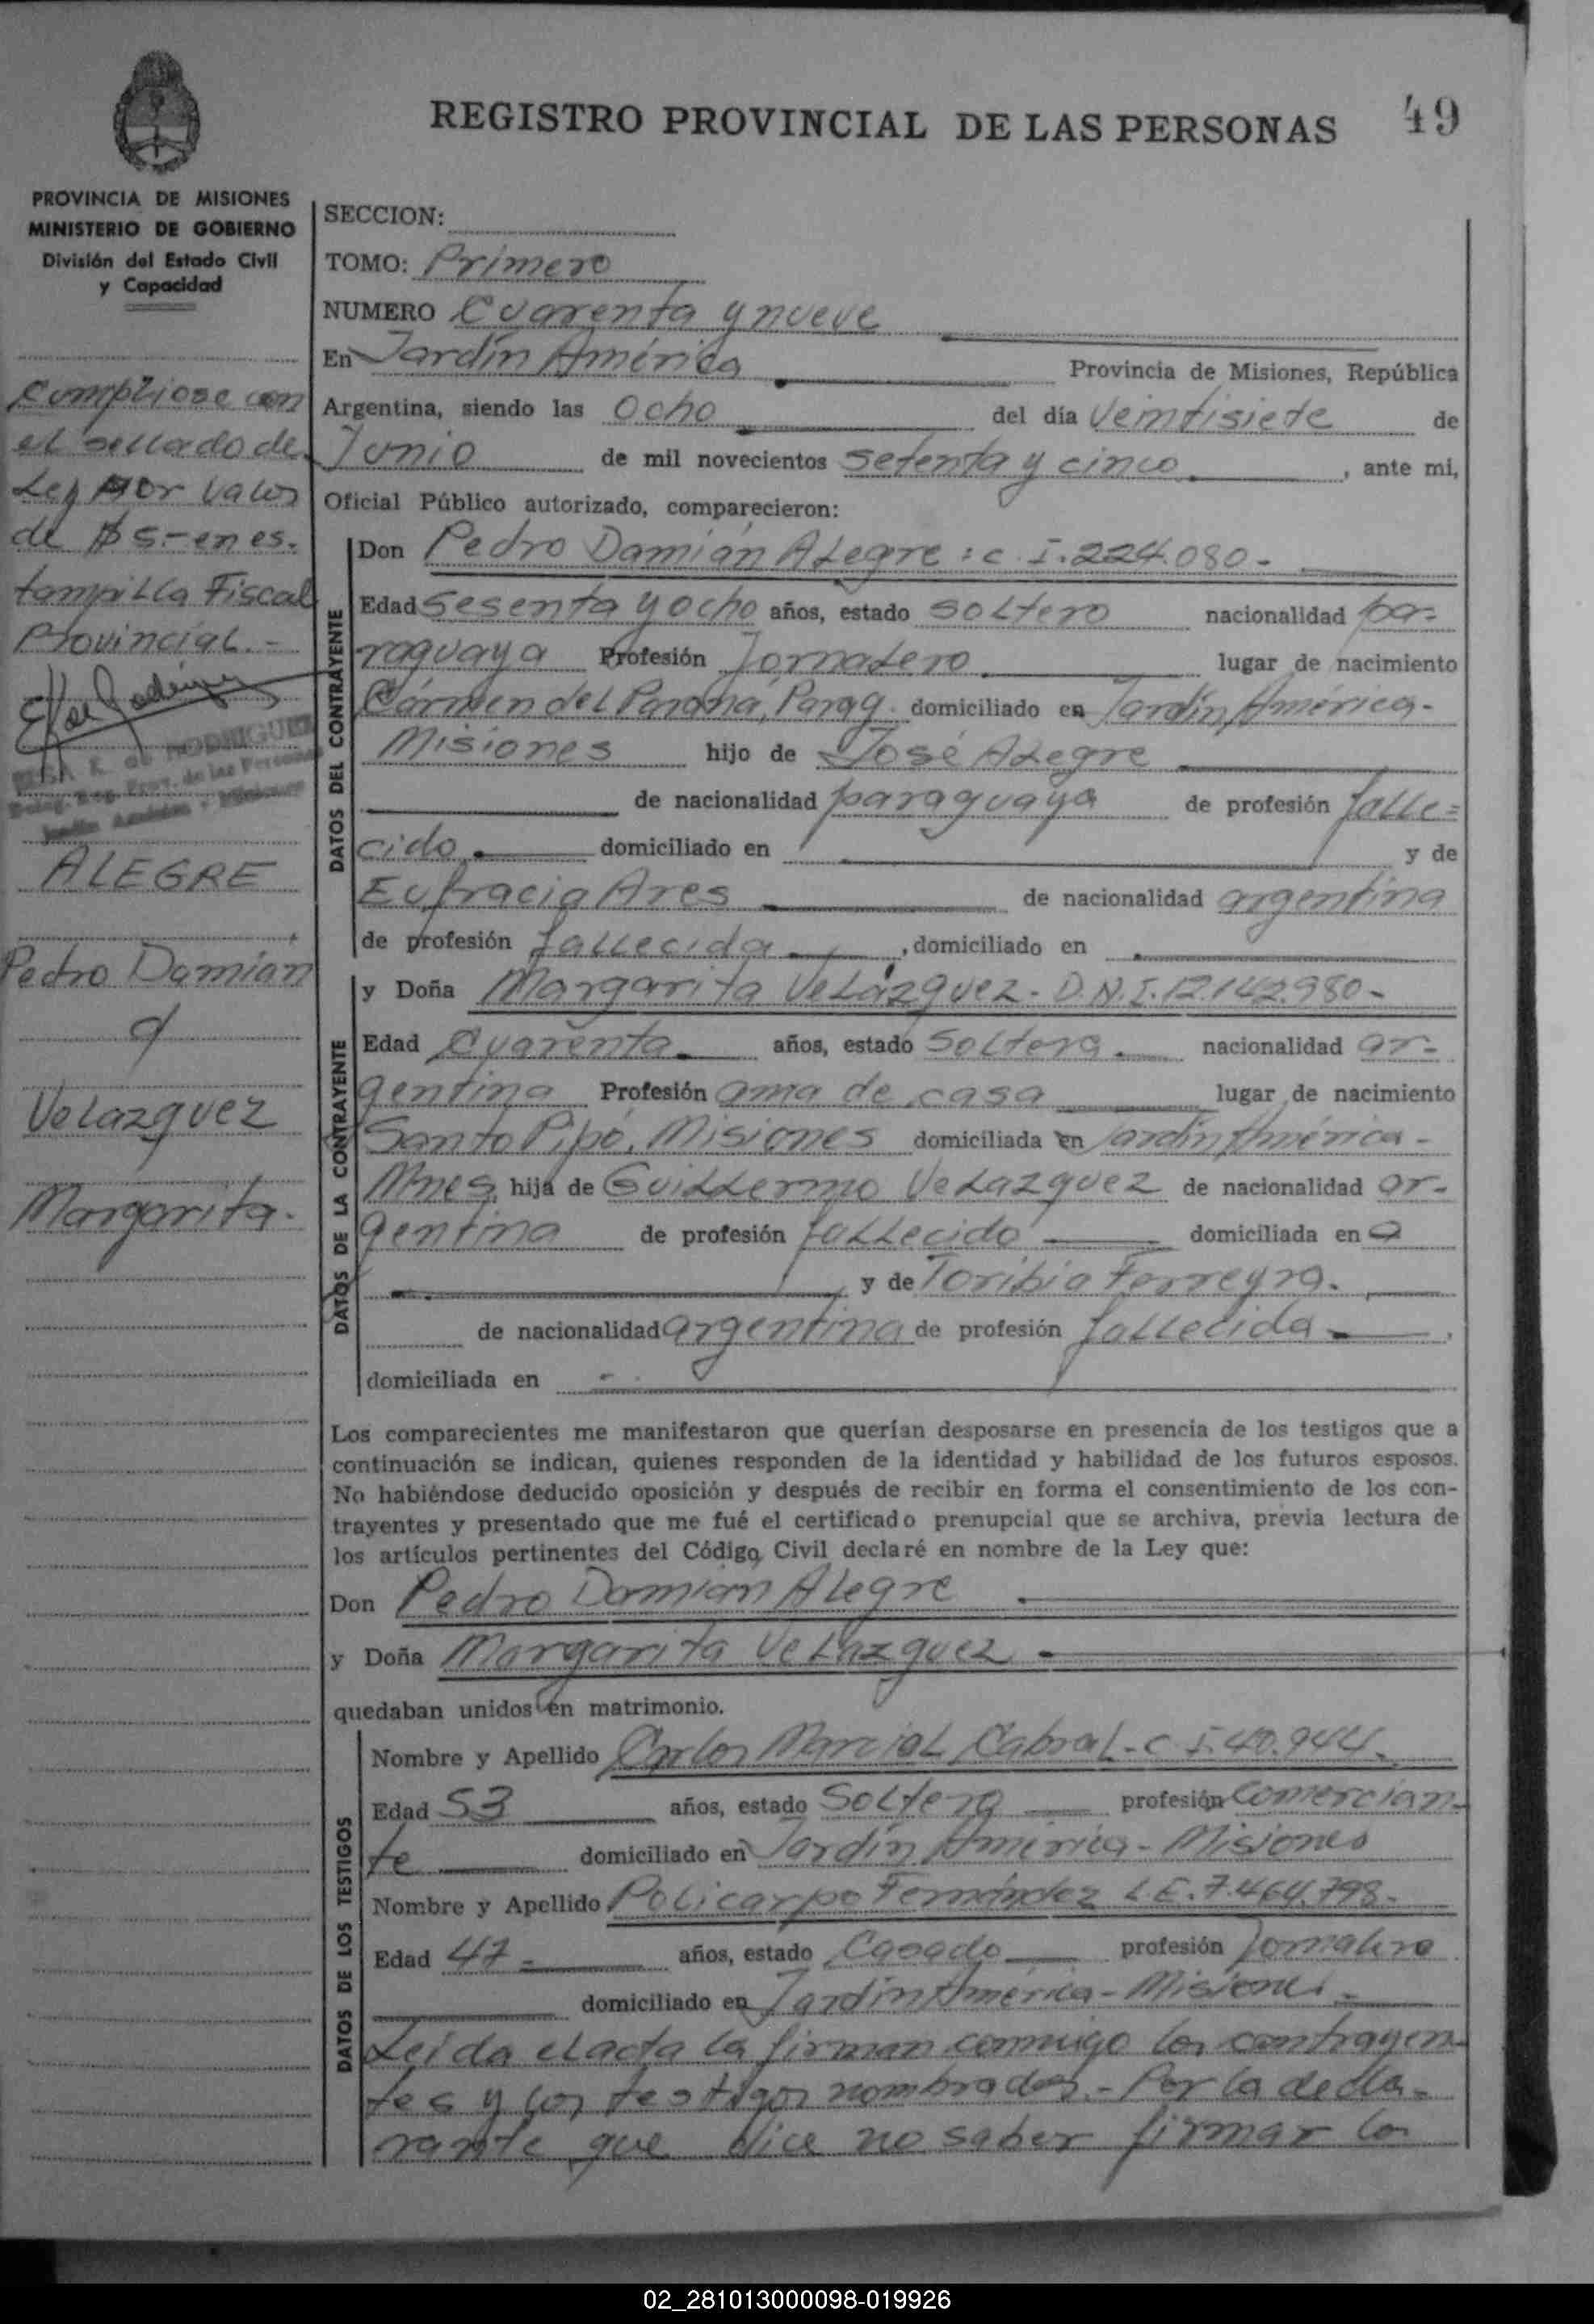 REGISTRO PROVINCIAL DE LAS PERSONAS 49
PROVINCIA DE MISIONES
MINISTERIO DE GOBIERNO
División del Estado Civil
y Capacidad
Cumpliose con
el sellado de
Ley por valor
de $ 5.- en es-
tampilla Fiscal
Provincial.-
RODRIGUEZ
ALEGRE
Pedro Damian
c/
Velazquez
Margarita.
SECCION:
TOMO: Primero
NUMERO Cuarenta y nueve
En Jardín América Provincia de Misiones, República
Argentina, siendo las Ocho del día veintisiete de
Junio de mil novecientos setenta y cinco, ante mi,
Oficial Público autorizado, comparecieron:
DATOS DEL CONTRAYENTE
Don Pedro Damián Alegre: C.I. 224.080-
Edad sesenta y ocho años, estado soltero nacionalidad pa-
raguaya Profesión Jornalero lugar de nacimiento
Cármen del Paraná, Parag. domiciliado en Jardín América-
Misiones hijo de José Alegre
de nacionalidad paraguaya de profesión falle=
cido.- domiciliado en y de
Eufracia Ares de nacionalidad argentina
de profesión fallecida, domiciliado en
DATOS DE LA CONTRAYENTE
y Doña Margarita Velázquez- D.N.I. 12.142.980-
Edad Cuarenta. años, estado Soltera. nacionalidad ar-
gentina Profesión ama de casa lugar de nacimiento
Santo Pipó, Misiones domiciliada en Jardín América-
Mnes. hija de Guillermo Velazquez de nacionalidad ar-
gentina de profesión fallecido domiciliada en
y de Toribia Ferreyra.
de nacionalidad argentina de profesión fallecida
domiciliada en
Los comparecientes me manifestaron que querían desposarse en presencia de los testigos que a
continuación se indican, quienes responden de la identidad y habilidad de los futuros esposos.
No habiéndose deducido oposición y después de recibir en forma el consentimiento de los con-
trayentes y presentado que me fué el certificado prenupcial que se archiva, previa lectura de
los artículos pertinentes del Código Civil declaré en nombre de la Ley que:
Don Pedro Damián Alegre
y Doña Margarita Velazquez
quedaban unidos en matrimonio.
DATOS DE LOS TESTIGOS
Nombre y Apellido Carlos Marcial Cabral- C.I. 40.944.
Edad 53 años, estado Soltero profesión Comercian-
te domiciliado en Jardín América- Misiones
Nombre y Apellido Policarpo Fernández L.E. 7.464.798-
Edad 47- años, estado Casado profesión Jornalero
domiciliado en Jardín América- Misiones-
Leída el acta la firman conmigo los contrayen-
tes y los testigos nombrados.- Por la decla-
rante que dice no saber firmar lo
02_281013000098-019926